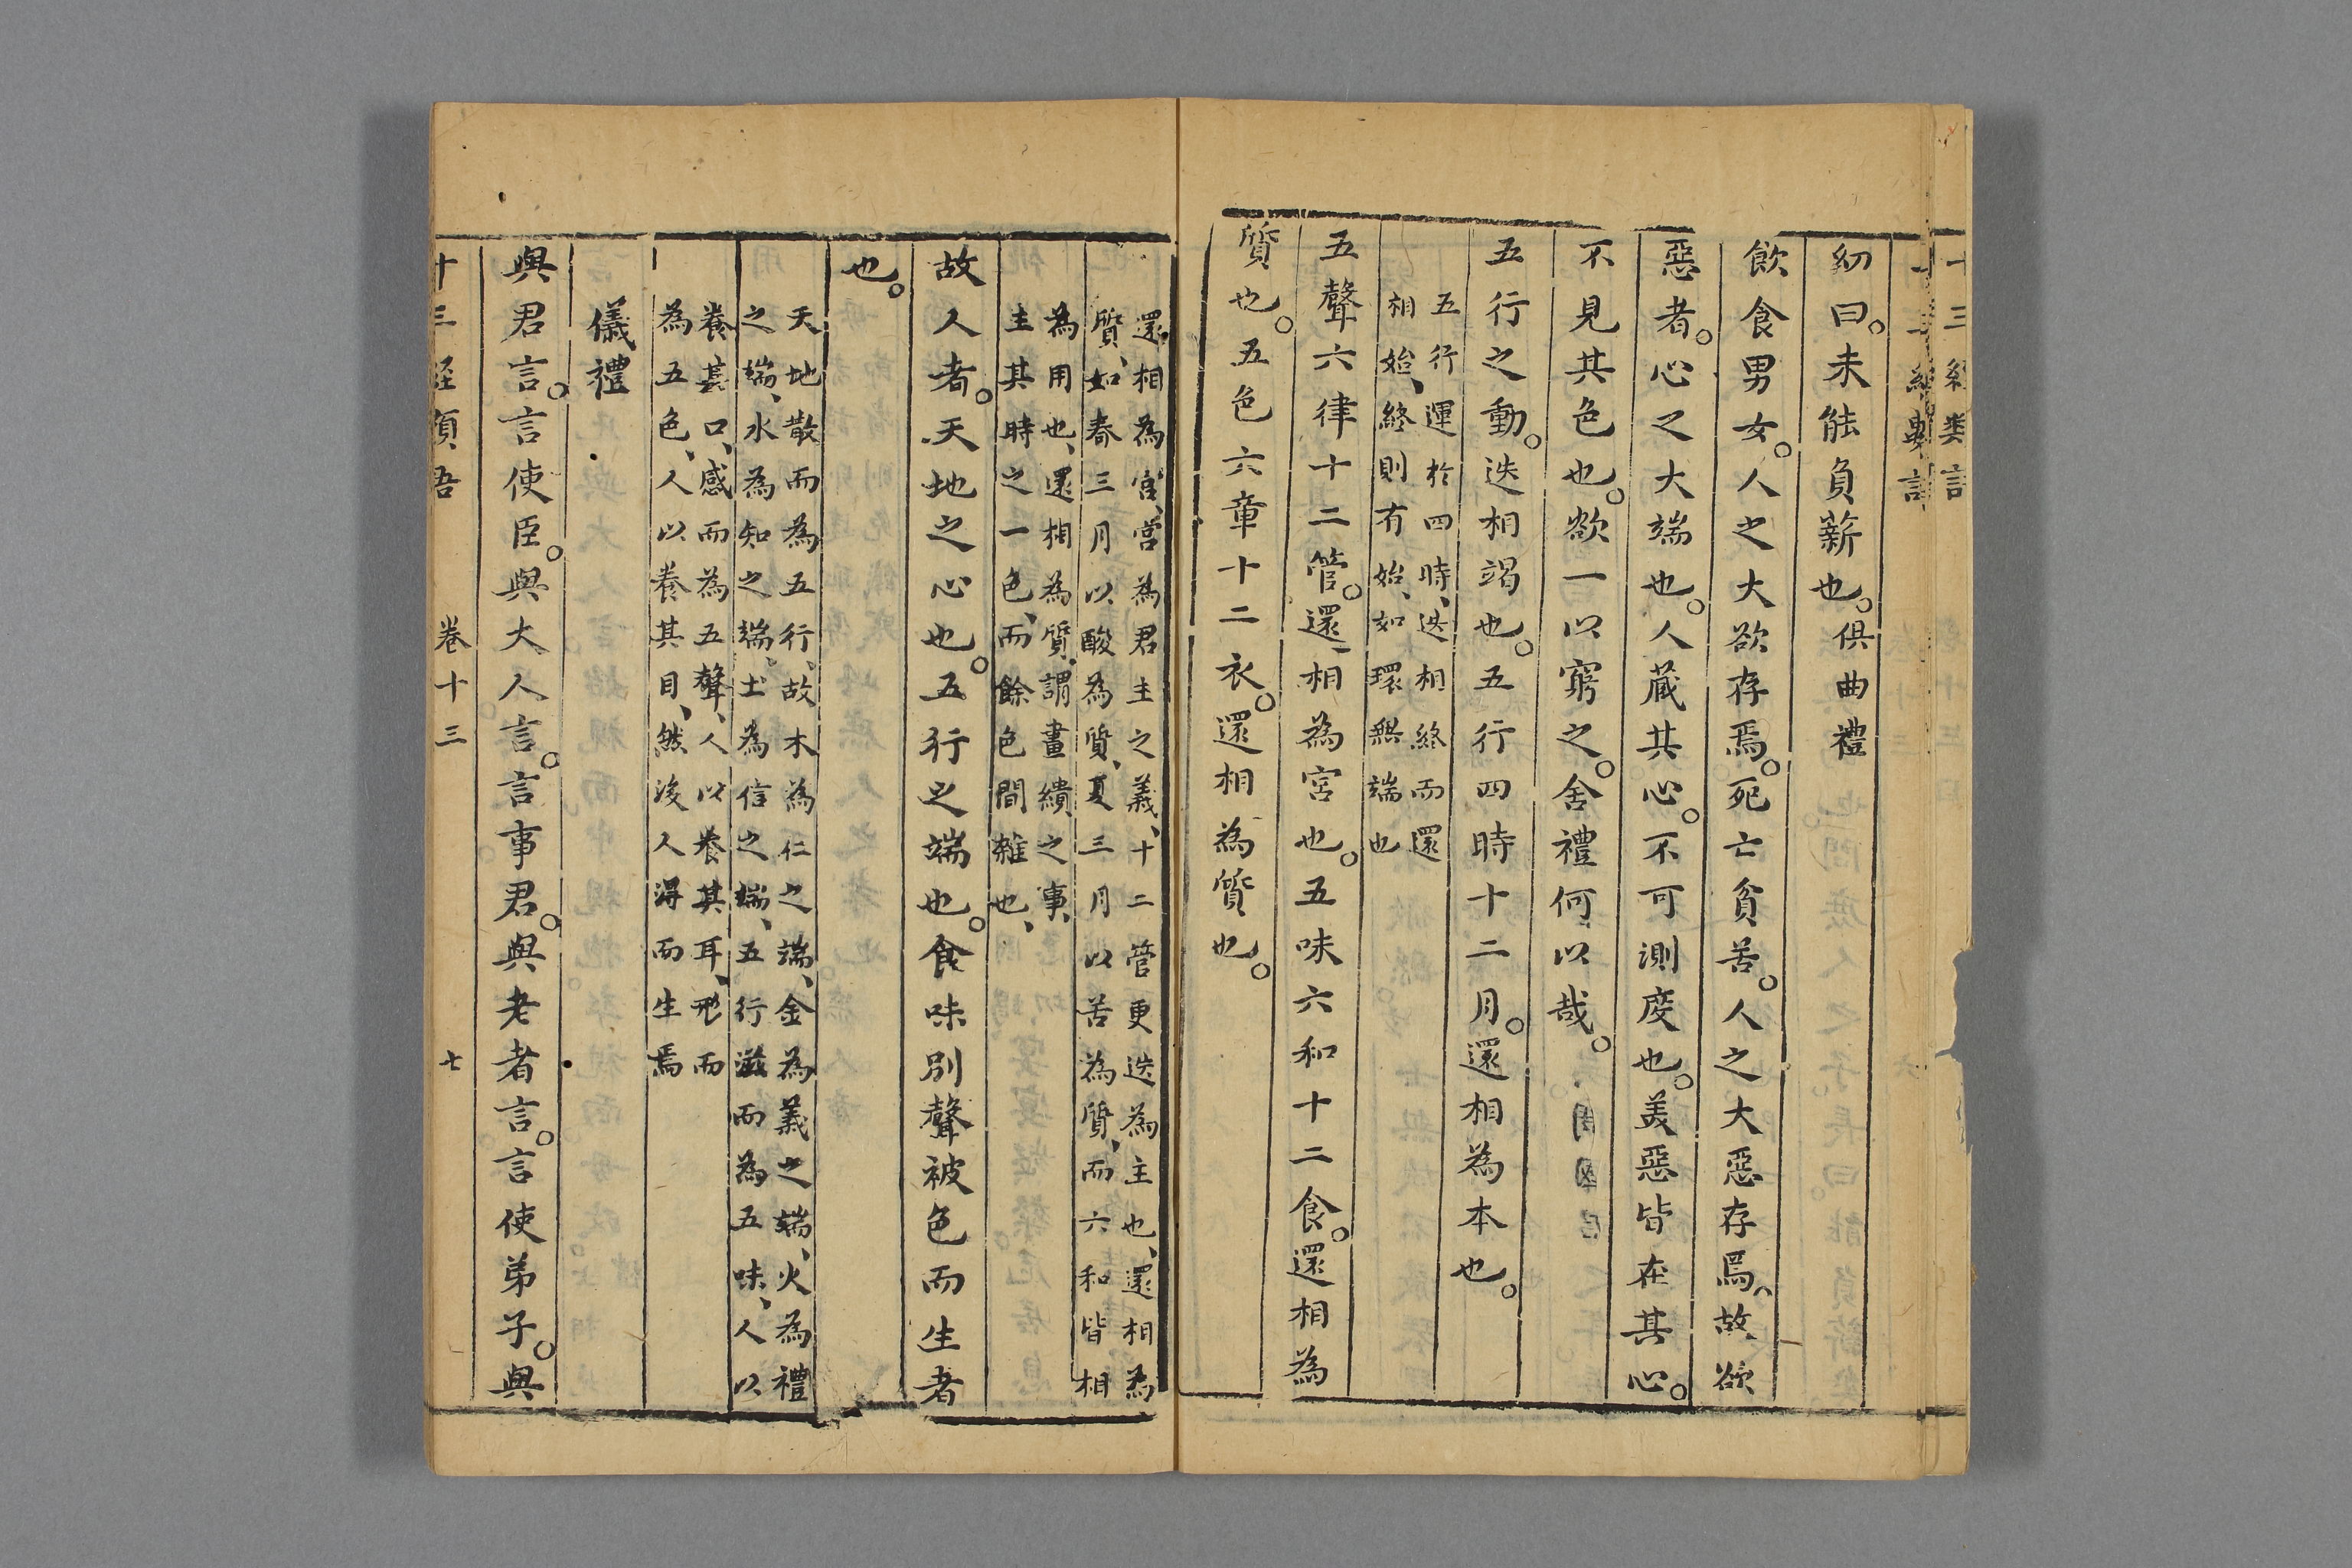 幼曰。未能負薪也。俱曲禮
飲食男女。人之大欲存焉。死亡貧苦。人之大惡存焉。故欲
惡者。心之大端也。人藏其心。不可測度也。美惡皆在其心。
不見其色也。欲一以窮之。舍禮何以哉。
五行之動。迭相竭也。五行四時十二月。還相為本也。
五行運於四時、迭相終而還
相始、終則有始、如環無端也
五聲六律十二管。還相為宮也。五味六和十二食。還相為
質也。五色六章十二衣。還相為質也。
還相為宮、宮為君主之義、十二管更迭為主也、還相為
質、如春三月以酸為質、夏三月以苦為質、而六和皆相
為用也、還相為質、謂畫繢之事、
主其時之一色、而餘色間雜也、
故人者。天地之心也。五行之端也。食味別聲被色而生者
也。
天地散而為五行、故木為仁之端、金為義之端、火為禮
之端、水為知之端、土為信之端、五行滋而為五味、人以
養其口、感而為五聲、人以養其耳、形而
為五色、人以養其目、然後人得而生焉
儀禮
與君言。言使臣。與大人言。言事君。與老者言。言使弟子。與
十三經類語 卷十三 七